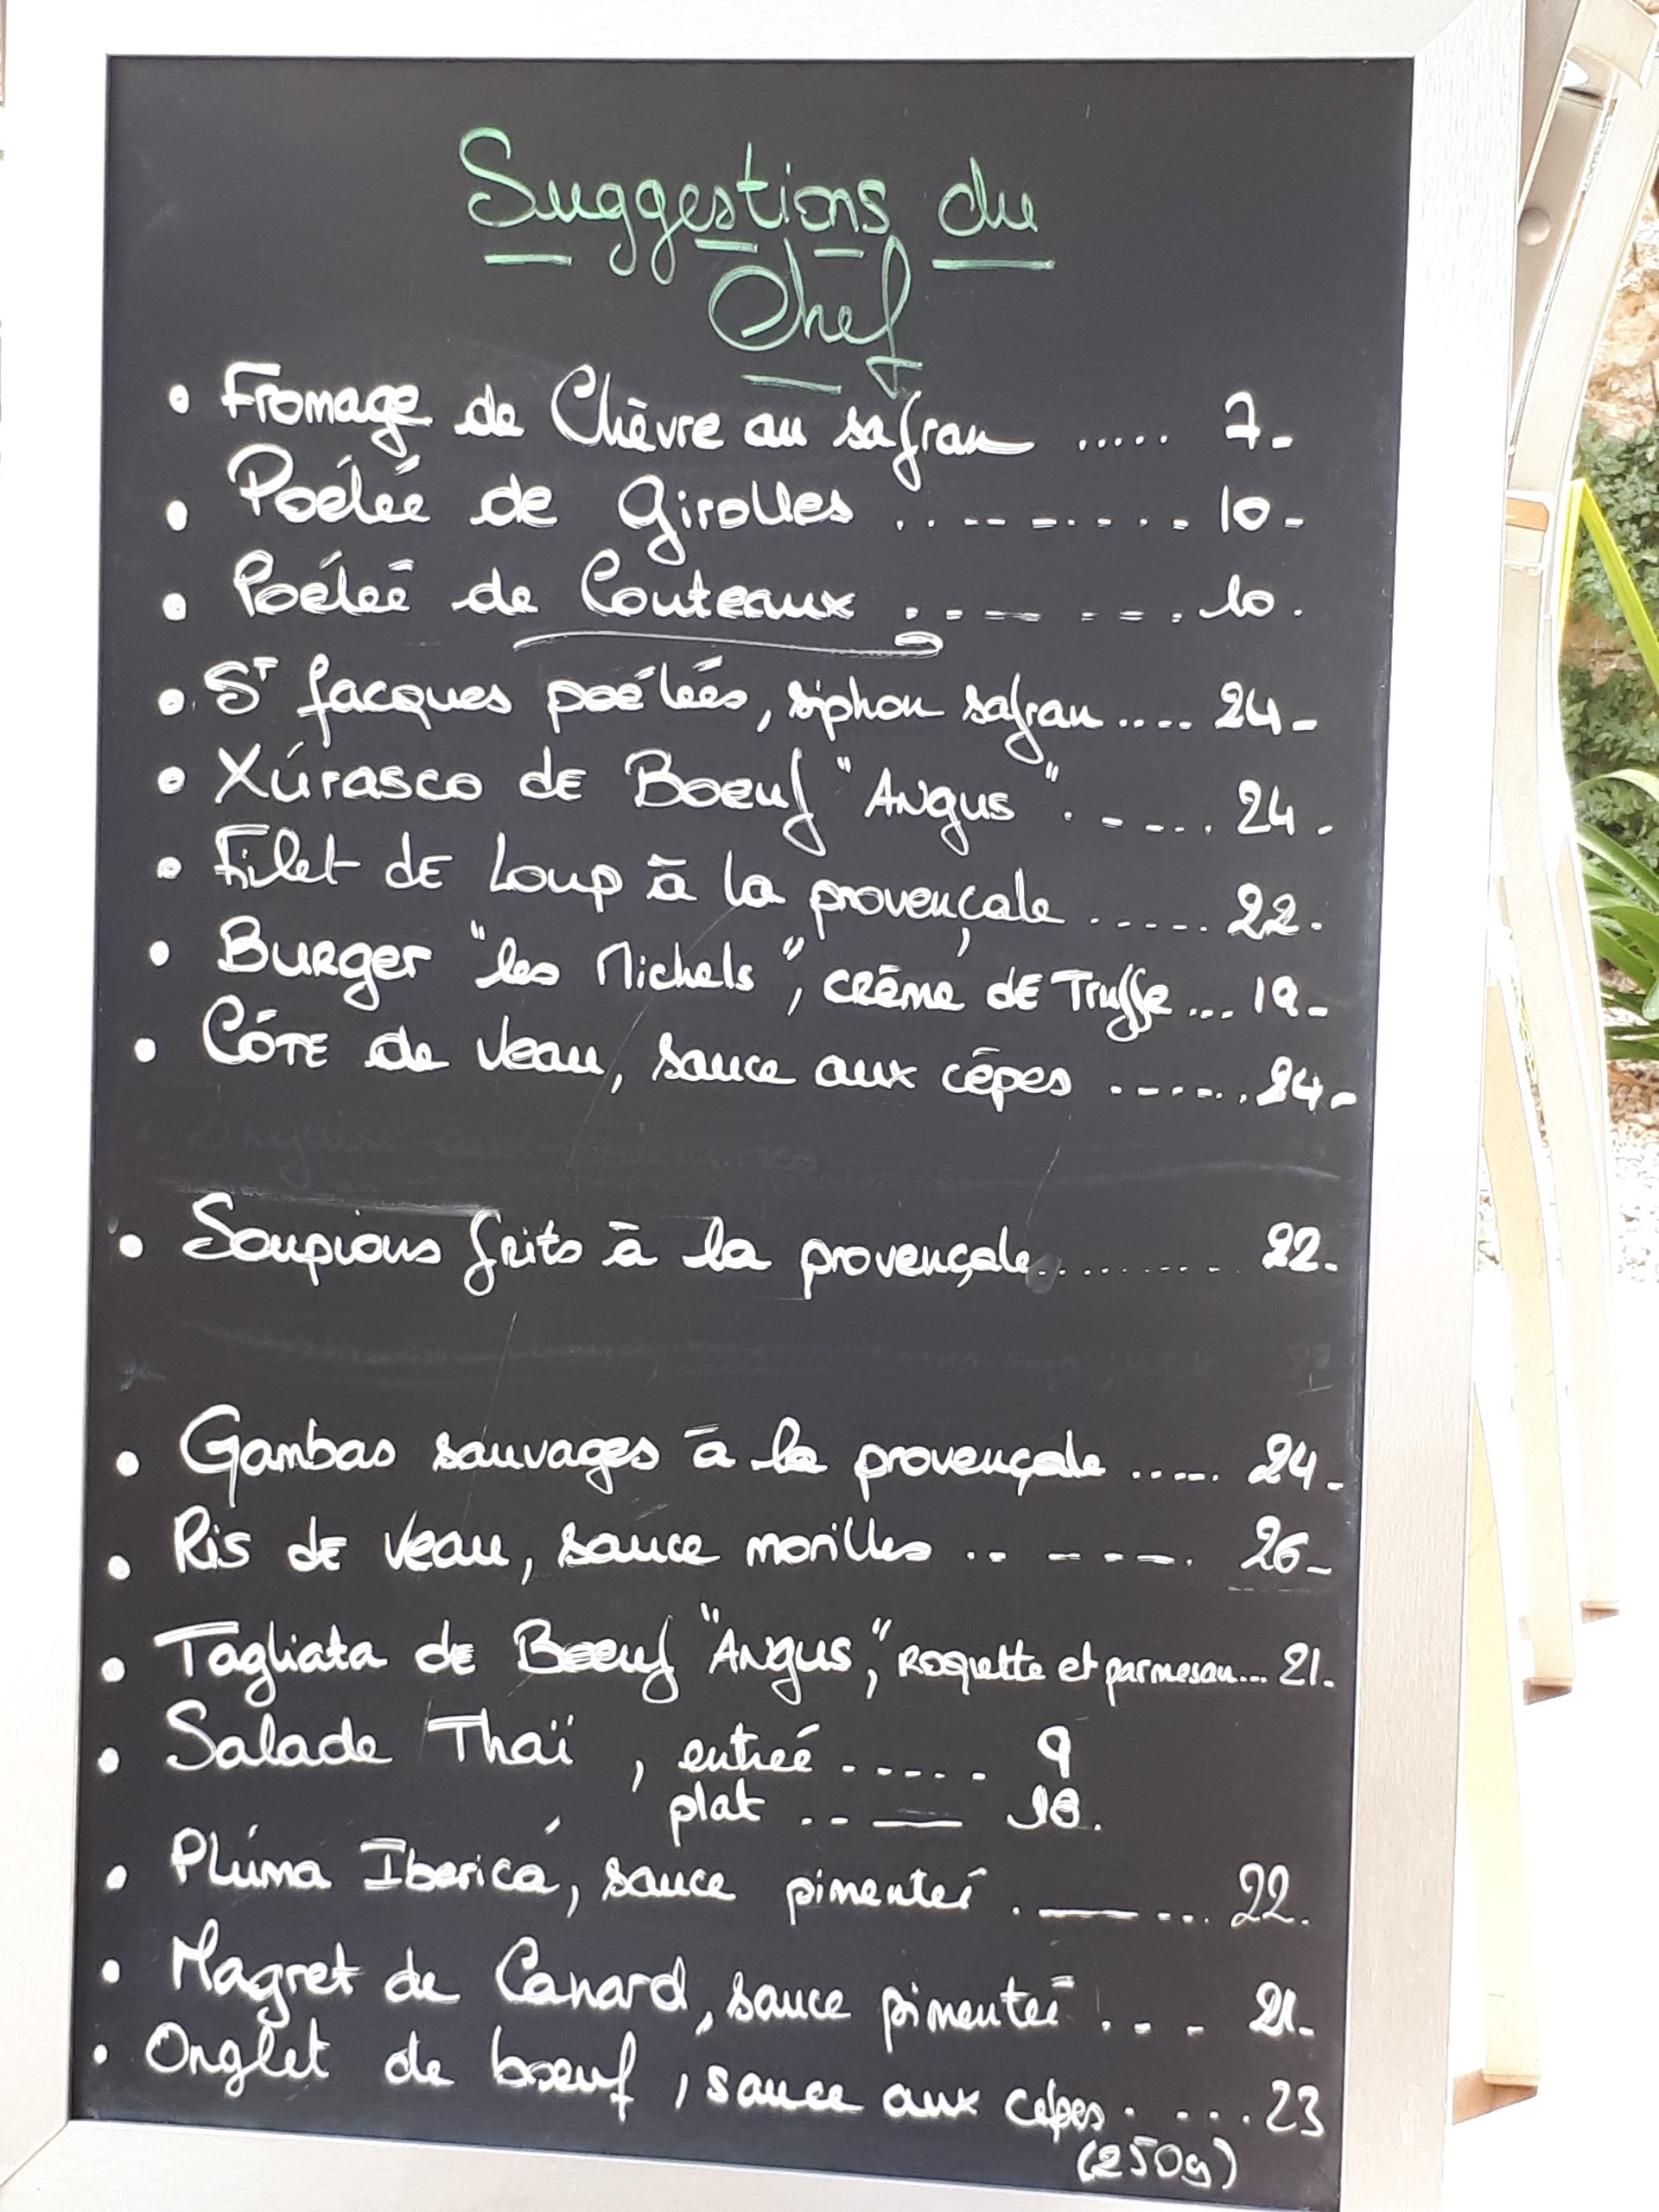 Suggestions du
Chef
• Fromage de Chèvre au safran ..... 7-
• Poélée de Girolles .......... 10-
• Poélée de Couteaux ......... 10.
• St Jacques poélées, siphon safran .... 24-
• Xúrasco de Boeuf "Angus" ...... 24.
• Filet de Loup à la provençale ..... 22.
• Burger "les Michels", crème de Truffe ... 19-
• Côte de Veau, sauce aux cèpes ...... 24-
• Soupions frits à la provençale ......... 22.
• Gambas sauvages à la provençale ..... 24-
• Ris de Veau, sauce morilles ....... 26-
• Tagliata de Boeuf "Angus", Roquette et parmesan... 21.
• Salade Thaï , entrée ..... 9
plat ..__ 18.
• Plúma Ibericá, sauce pimenteí .__... 22.
• Magret de Canard, sauce pimenteí ... 21-
• Onglet de boeuf , sauce aux cèpes .... 23
(250g)